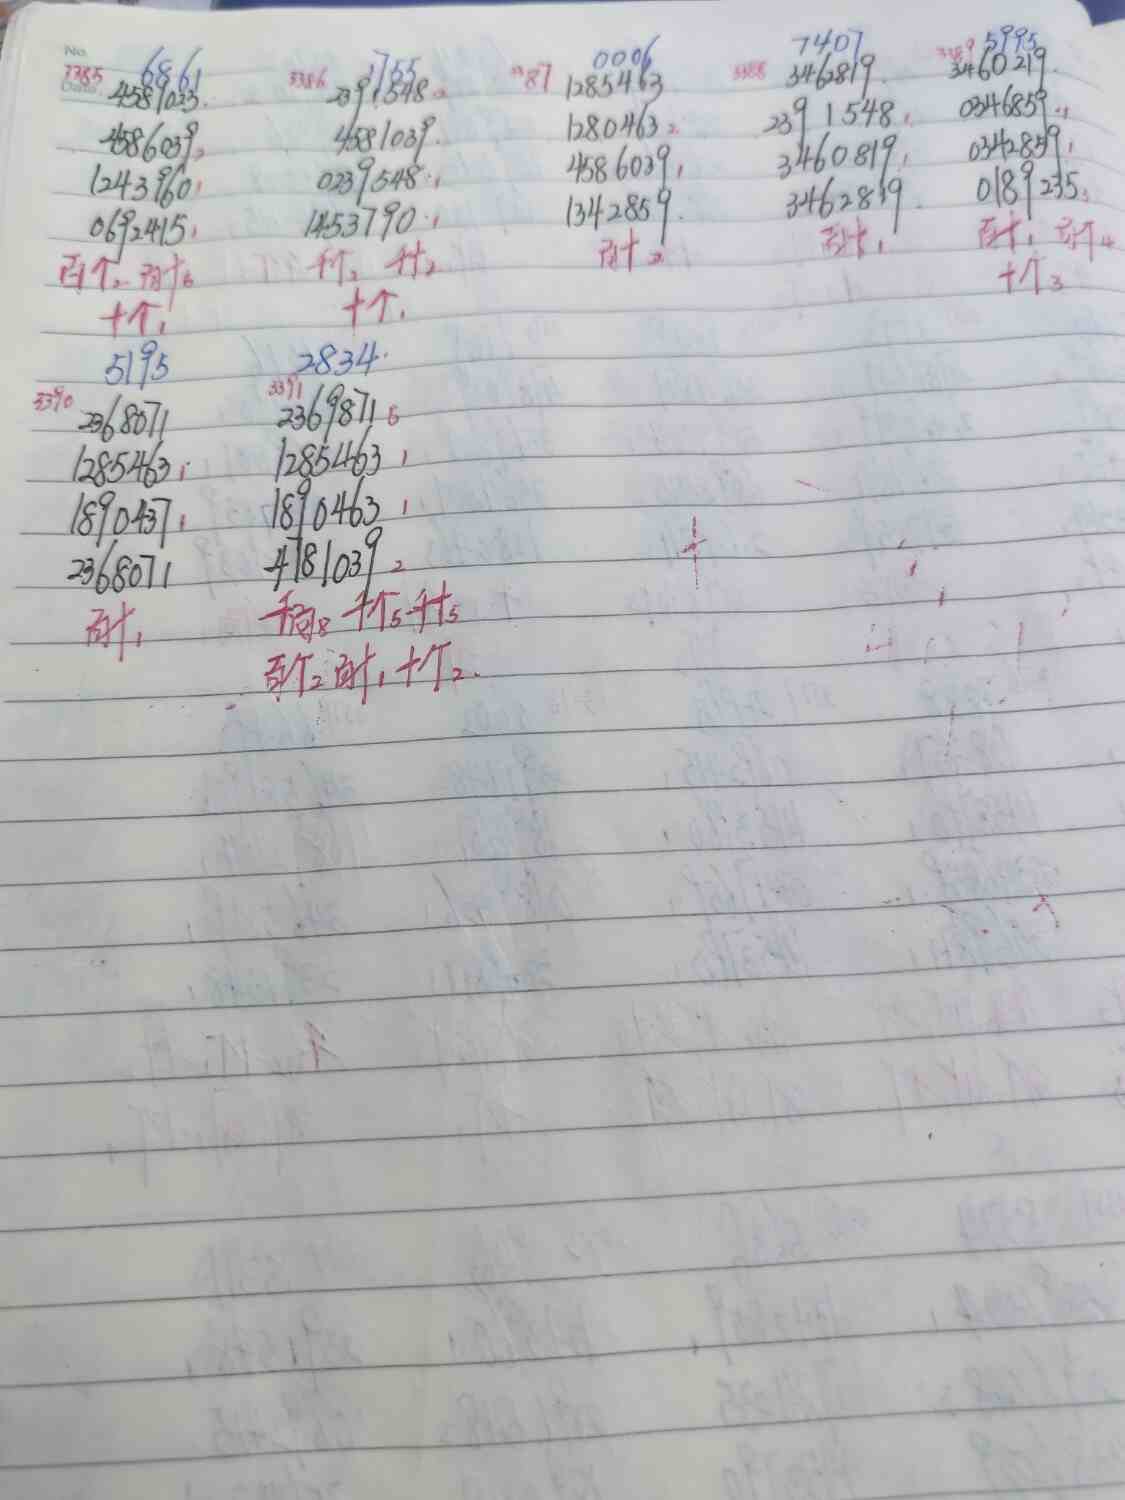 No.
3385 6861
4589023.
4586039.2
1243960.1
0692415.1
百个.2 百十6
十个.1
3386 1755
2391548.2
4581039.
0239548.1
1453790.1
千个.2 千十2
十个.1
3387 0006
1285463
1280463.2
4586039.1
1342859.
百十2
3388 7407
3462819.
2391548.1
3460819.1
3462819.
百十1
3389 5995
3460219.
0346859.1
0342859.1
0189235.1
百十1 百个4
十个3
3390 5195
2368071
1285463.1
1890437.1
2368071
百十1
3391 2834.
2369871 6
1285463 1
1890463 1
4781039 2
千百8 千个5 千十5
百个2 百十1 十个2.